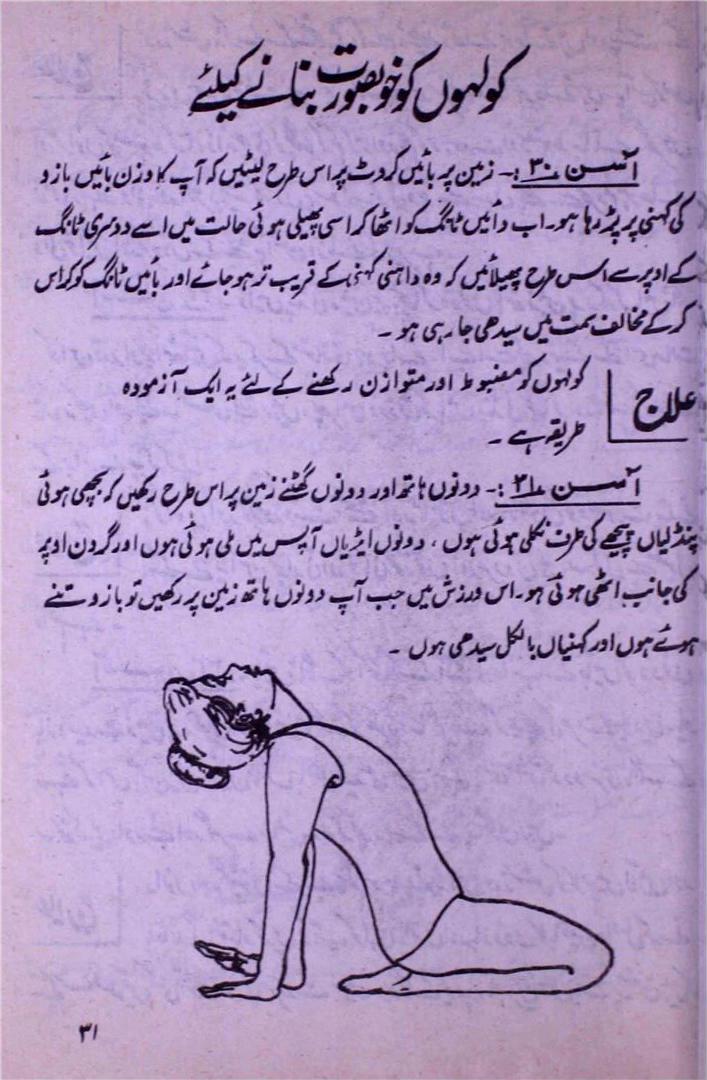 کولہوں کو خوبصورت بنانے کیلئے
آسن ۳۰:۔ زمین پر بائیں کروٹ پر اس طرح لیٹیں کہ آپ کا وزن بائیں بازو
کی کہنی پر پڑ رہا ہو۔ اب دائیں ٹانگ کو اٹھا کر اسی پھیلی ہوئی حالت میں اسے دوسری ٹانگ
کے اوپر سے اس طرح پھیلائیں کہ وہ داہنی کہنی کے قریب تر ہو جائے اور بائیں ٹانگ کو کراس
کر کے مخالف سمت میں سیدھی جا رہی ہو ۔
علاج کولہوں کو مضبوط اور متوازن رکھنے کے لئے یہ ایک آزمودہ
طریقہ ہے ۔
آسن ۳۱:۔ دونوں ہاتھ اور دونوں گھٹنے زمین پر اس طرح رکھیں کہ بچھی ہوئی
پنڈلیاں پیچھے کی طرف نکلی ہوئی ہوں ، دونوں ایڑیاں آپس میں ملی ہوئی ہوں اور گردن اوپر
کی جانب اٹھی ہوئی ہو۔ اس ورزش میں جب آپ دونوں ہاتھ زمین پر رکھیں تو بازو تنے
ہوئے ہوں اور کہنیاں بالکل سیدھی ہوں ۔
۳۱